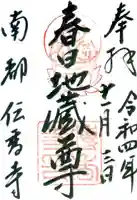 奉拝
令和四年
十一月三日
春日地蔵尊
南都伝香寺